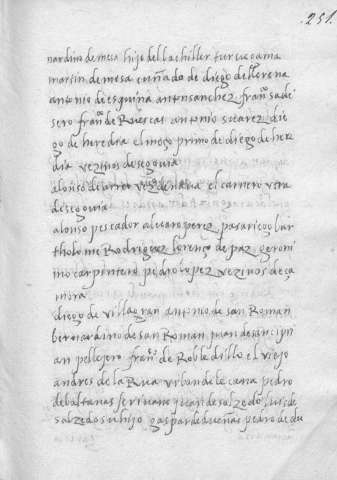 251.
nardino de mesa hijo del bachiller
martin de mesa cuñado de diego de llerena
antonio de esquina anton sanchez fran^co sa de
sero fran^co de Ruescas antonio suarez die
go de heredia el moço primo de diego de her
dia vezinos de segouia
alonso de v^o de naua el carnero trra
de segouia
alonso pescador aluaro perez pasarico bar
tholome Rodriguez lorenço de paz geroni
mo carpintero pedro lopez vezinos de ça
mora
diego de villagran antonio de san Roman
bernaraino de san Roman juan de san çipri
an pellejero fran^co de Robledillo el viejo
andres de la Rua vrban de la cana pedro
de baltanas scriuano juan de salzedo luis de
salzedo su hijo gaspar de dueñas pedro de du